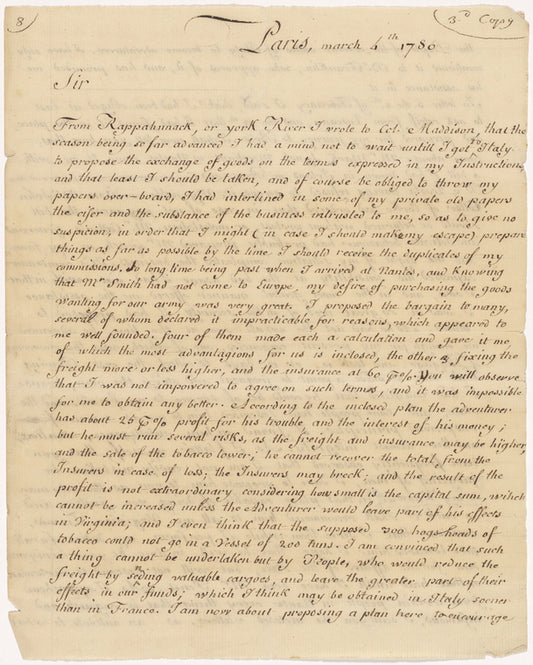 8
3.d Copy
Paris, march 4th 1780
Sir
From Rappahnnack, or york River I wrote to Col. Maddison, that the
season being so far advanced I had a mind not to wait untill I got to Italy
to propose the exchange of goods on the terms expressed in my Instructions,
and that least I should be taken, and of course be obliged to throw my
papers over-board, I had interlined in some of my private old papers
the cifer and the substance of the business intrusted to me, so as to give no
suspicion, in order that I might (in case I should make my escape) prepare
things as far as possible by the time I should receive the duplicates of my
commissions. So long time being past when I arrived at Nantes, and Knowing
that Mr Smith had not come to Europe, my desire of purchasing the goods
wanting for our army was very great. I proposed the bargain to many,
several of whom declared it impracticable for reasons, which appeared to
me well founded. four of them made each a calculation and gave it me,
of which the most advantagious for us is inclosed, the other 3 fixing the
freight more or less higher, and the insurance at 60 P%. You will observe
that I was not impowered to agree on such terms, and it was impossible
for me to obtain any better. According to the inclosed plan the adventurer
has about 25 P% profit for his trouble, and the interest of his money;
but he must run several risks, as the freight and insurance may be higher,
and the sale of the tobacco lower; he cannot recover the total from the
Insurers in case of loss; the Insurers may breck; and the result of the
profit is not extraordinary considering how small is the capital sum, which
cannot be increased unless the Adventurer would leave part of his effects
in Virginia; and I even think that the supposed 300 hogs-heads of
tobacco could not go in a Vessel of 200 tuns. I am convinced that such
a thing cannot be undertaken but by People, who would reduce the
freight by sending valuable cargoes, and leave the greater part of their
effects in our funds; which I think may be obtained in Italy sooner
than in France. I am now about proposing a plan here to encourage